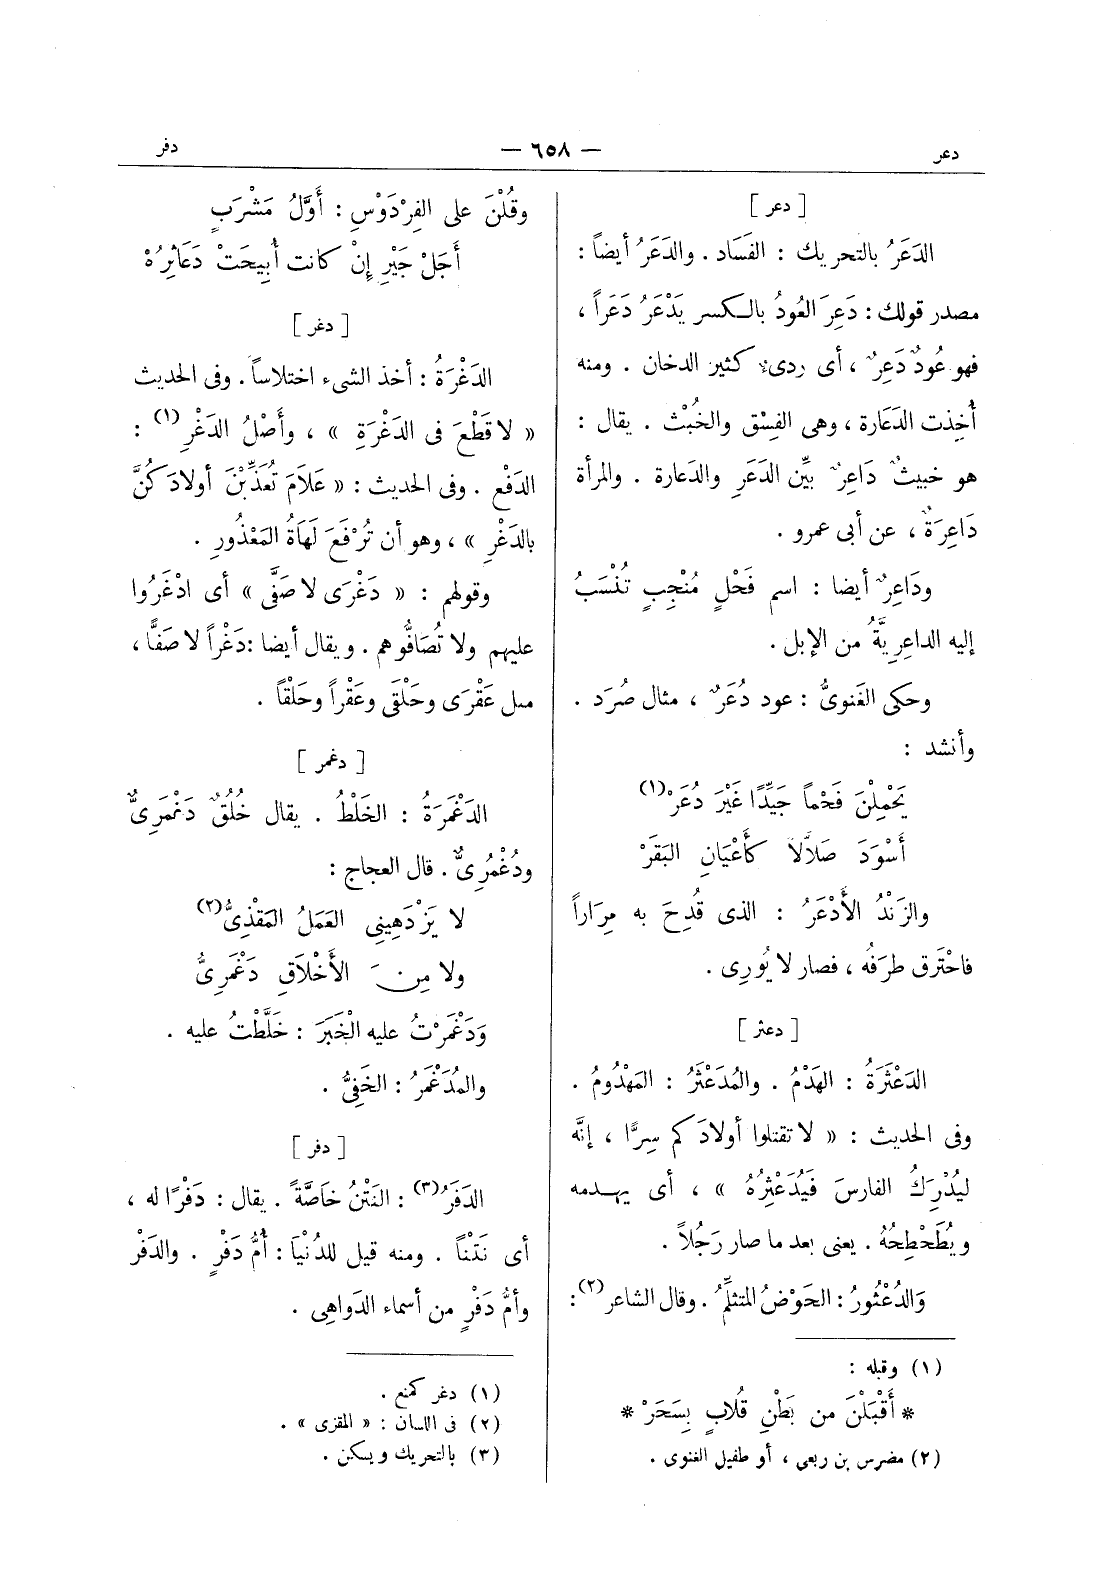 دعر
— ٦٥٨ —
دفر
[ دعر ]
الدَعَرُ بالتحريك : الفَسَاد . والدَعَرُ أيضاً :
مصدر قولك : دَعِرَ العُودُ بالكسر يَدْعَرُ دَعَراً ،
فهو عُودٌ دَعِرٌ ، أى ردىء كثير الدخان . ومنه
أُخِذت الدَعَارة ، وهى الفِسْق والخُبْث . يقال :
هو خبيثٌ دَاعِرٌ بيِّن الدَعَرِ والدَعارة . والمرأة
دَاعِرَةٌ ، عن أبى عمرو .
ودَاعِرٌ أيضا : اسم فَحْلٍ مُنْجِبٍ تُنْسَبُ
إليه الداعِرِيَّةُ من الإبل .
وحكى الغَنوىُّ : عود دُعَرٌ ، مثال صُرَد .
وأنشد :
يَحْمِلْنَ فَحْماً جَيِّدًا غَيْرَ دُعَرْ (١)
أَسْوَدَ صَلاَّلاً كَأَعْيَانِ البَقَرْ
والزَنْدُ الأَدْعَرُ : الذى قُدِحَ به مِرَاراً
فاحْترق طرَفُه ، فصار لا يُورِى .
[ دعثر ]
الدَعْثَرَةُ : الهَدْمُ . والمُدَعْثَرُ : المَهْدُومُ .
وفى الحديث : « لا تقتلوا أولادَكم سِرًّا ، إنَّه
ليُدْرِكُ الفارسَ فَيُدَعْثِرُهُ » ، أى يهدمه
ويُطَحْطِحُهُ . يعنى بعد ما صار رَجُلاً .
وَالدُعْثُورُ : الحَوْضُ المتثلِّمُ . وقال الشاعر (٢) :
(١) وقبله :
* أَقْبَلْنَ من بَطْنِ قُلاَبٍ بِسَحَرْ *
(٢) مضرس بن ربعى ، أو طفيل الغنوى .
وقُلْنَ على الفِرْدَوْسِ : أَوَّلُ مَشْرَبٍ
أَجَلْ جَيْرِ إِنْ كانت أُبِيحَتْ دَعَاثِرُهْ
[ دغر ]
الدَغْرَةُ : أخذ الشىء اختلاساً . وفى الحديث
« لا قَطْعَ فى الدَغْرَةِ » ، وأَصْلُ الدَغْرِ (١) :
الدَفْع . وفى الحديث : « عَلاَمَ تُعَذِّبْنَ أولادَكُنَّ
بالدَغْرِ » ، وهو أن تُرْفَعَ لَهَاةُ المَعْذُورِ .
وقولهم : « دَغْرَى لا صَفَّى » أى ادْغَرُوا
عليهم ولا تُصَافُّوهم . ويقال أيضا : دَغْراً لا صَفًّا ،
مىل عَقْرَى وحَلْقَى وعَقْراً وحَلْقاً .
[ دغمر ]
الدَغْمَرَةُ : الخَلْطُ . يقال خُلُقٌ دَغْمَرِىٌّ
ودُغْمُرِىٌّ . قال العجاج :
لا يَزْدَهِينِى العَمَلُ المَقْذِىُّ (٢)
ولا مِنَ الأَخْلاَقِ دَغْمَرِىُّ
وَدَغْمَرْتُ عليه الْخَبَرَ : خَلَّطْتُ عليه .
والمُدَغْمَرُ : الخَفِىُّ .
[ دفر ]
الدَفَرُ (٣) : النَتْنُ خَاصَّةً . يقال : دَفْرًا له ،
أى نَتْناً . ومنه قيل للدُنْيَا : أُمُّ دَفْرٍ . والدَفْر
وأمُّ دَفْرٍ من أسماء الدَواهِى .
(١) دغر كمنع .
(٢) فى اللسان : « المقزى » .
(٣) بالتحريك ويسكن .